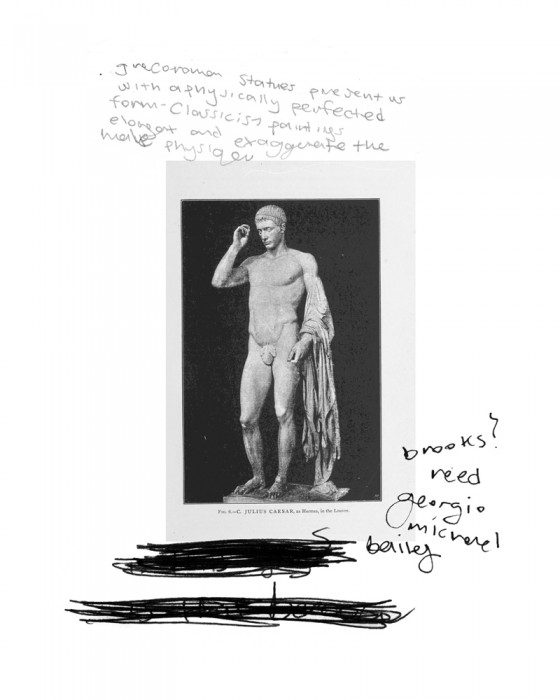 . grecoroman statues present us
with a physically perfected
form - Classicist paintings
elongat and exaggerate the
male physique
FIG. 8.—C. JULIUS CAESAR, as Hermes, in the Louvre.
brooks?
reed
georgio
michael
bailey